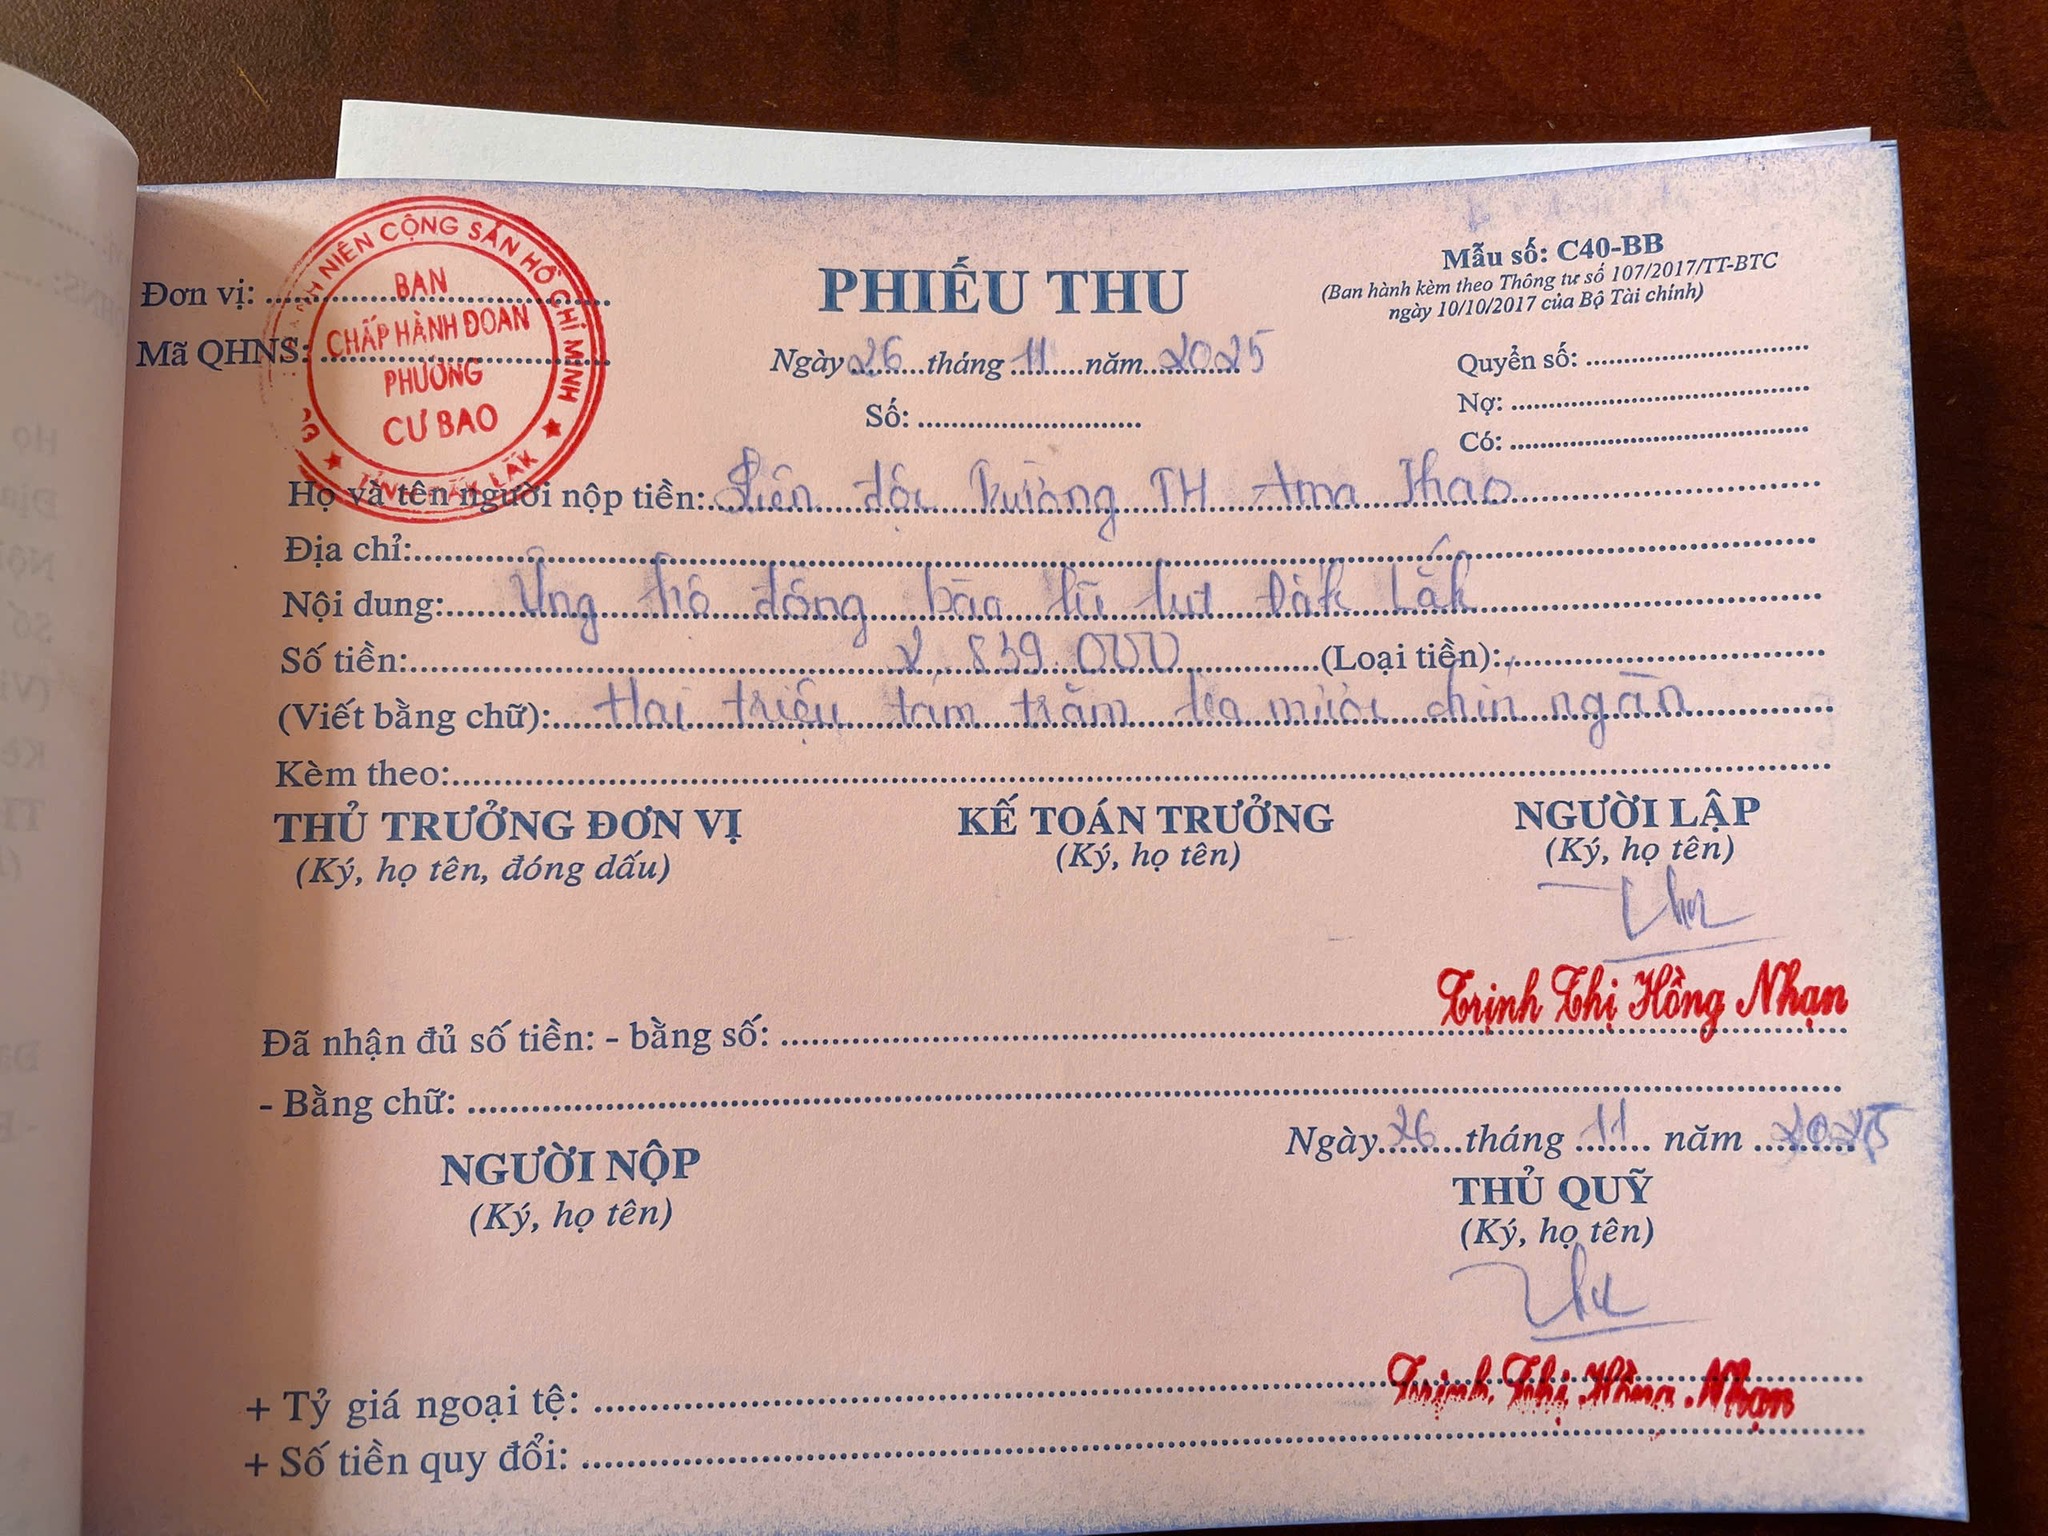 NIÊN CỘNG SẢN HỒ CHÍ MINH
BAN
CHẤP HÀNH ĐOÀN
PHƯỜNG
CƯ BAO
TỈNH ĐẮK LẮK
PHIẾU THU
Mẫu số: C40-BB
(Ban hành kèm theo Thông tư số 107/2017/TT-BTC
ngày 10/10/2017 của Bộ Tài chính)
Đơn vị:
Mã QHNS:
Ngày 26 tháng 11 năm 2025
Quyển số:
Số:
Nợ:
Có:
Họ và tên người nộp tiền: Liên đội Trường TH Ama Thao
Địa chỉ:
Nội dung: Ủng hộ đồng bào lũ lụt Đắk Lắk
Số tiền: 2.839.000 (Loại tiền):
(Viết bằng chữ): Hai triệu tám trăm ba mươi chín ngàn
Kèm theo:
THỦ TRƯỞNG ĐƠN VỊ KẾ TOÁN TRƯỞNG NGƯỜI LẬP
(Ký, họ tên, đóng dấu) (Ký, họ tên) (Ký, họ tên)
Trịnh Thị Hồng Nhạn
Đã nhận đủ số tiền: - bằng số:
- Bằng chữ:
Ngày 26 tháng 11 năm 2025
NGƯỜI NỘP THỦ QUỸ
(Ký, họ tên) (Ký, họ tên)
Trịnh Thị Hồng Nhạn
+ Tỷ giá ngoại tệ:
+ Số tiền quy đổi: